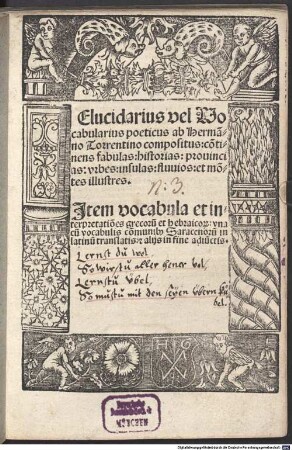 Elucidarius vel Vo
cabularius poeticus ab Hermā
no Torrentino compositus: cōti
nens fabulas: historias: prouinci
as: vrbes: insulas: fluuios: et mō
tes illustres.
N: 3.
Item vocabula et in
terpretatiōes grecorū et hebraicorū: vna
cū vocabulis cōmunib⁹ Saracenorū in
latinū translatis: alijs in fine adiūctis.
Lernst du wol
So wirstu aller hener vol,
Lernstu Vbel,
So mustu mit den seyen vbern
bel.
H F G
MÜNCHEN